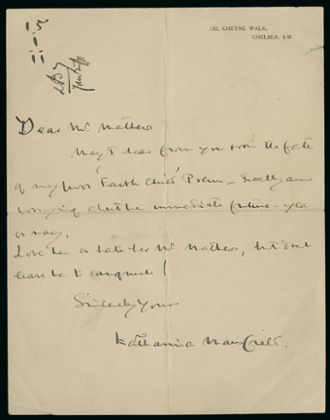 132, CHEYNE WALK,
CHELSEA, S.W.
Dear Mr Mathews
May I hear from you soon the fate
of my poor 'Earth Child' Poems - I really am
worrying about her immediate future - yea
or nay.
Love her or hate her Mr Mathews, but don't
leave her to languish!
Sincerely Yours
Katharina Mansfield.